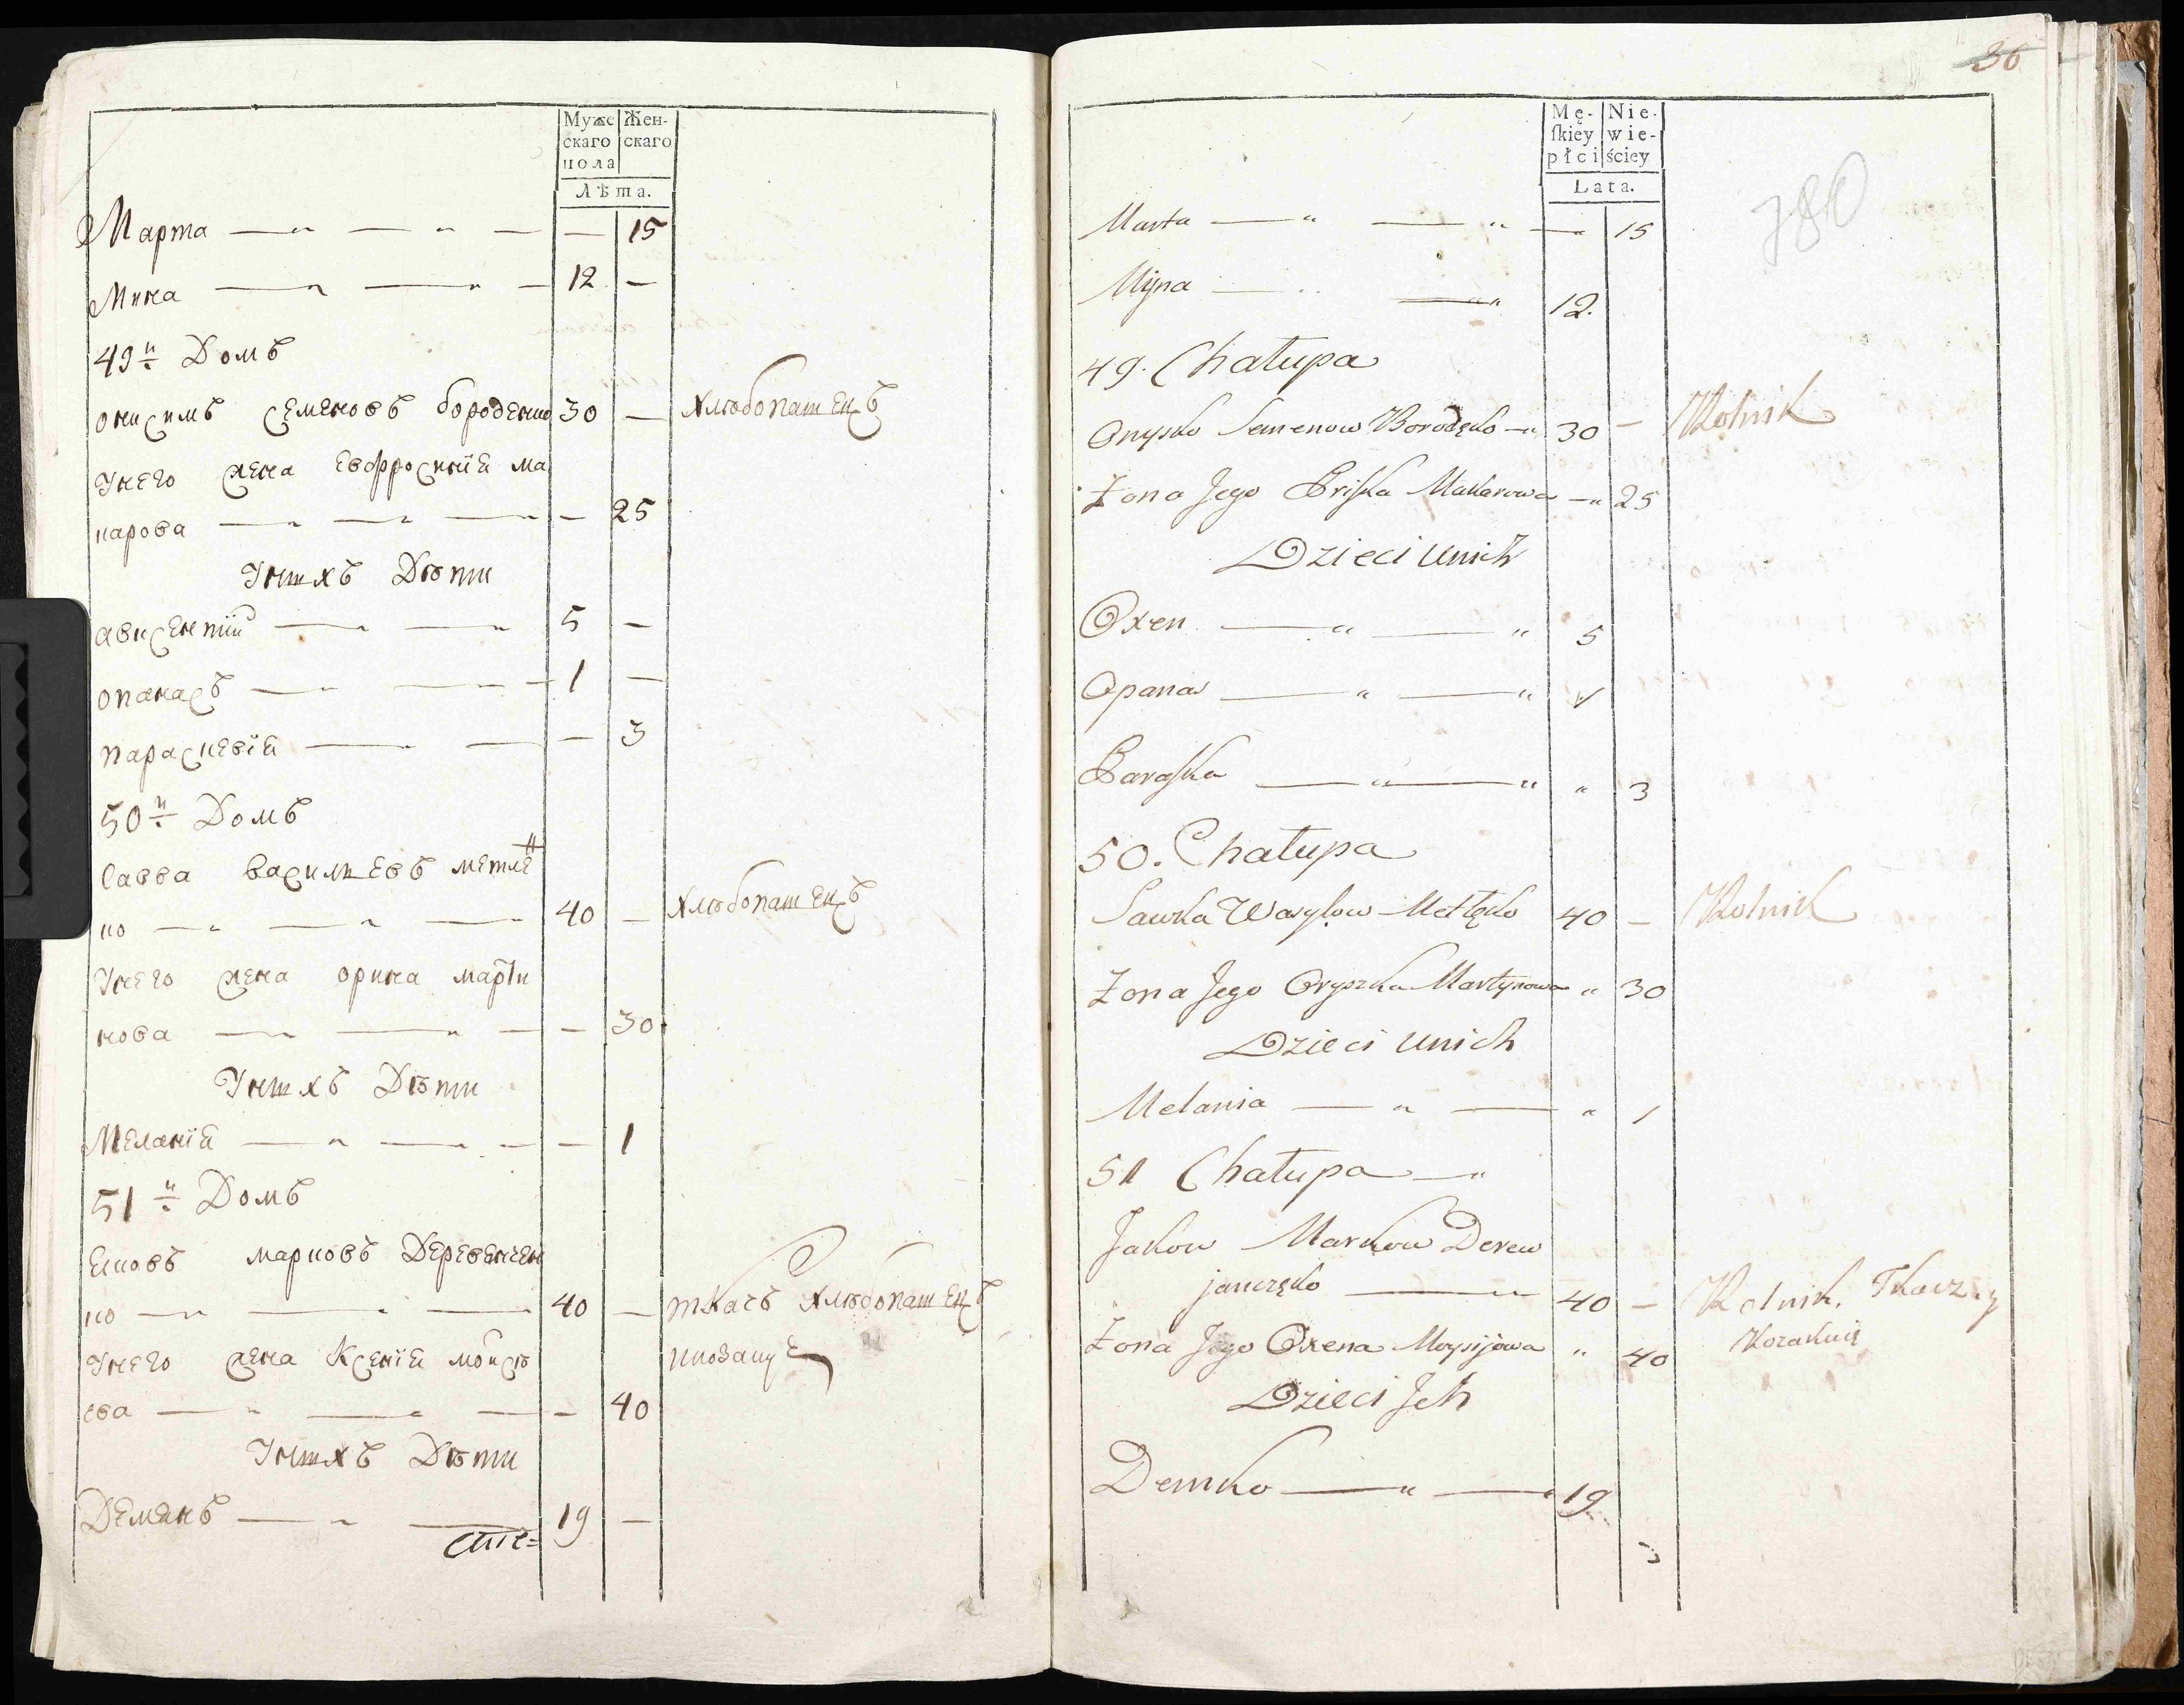 Муже Жен-
скаго скаго
пола
Лѣта.
Марта — — — 15
Мина — — 12 —
49й Домъ
Онисимъ Семеновъ Бороденко 30 — Хлѣбопашецъ
Унего жена Евфросинiя Ма
карова — — — — 25
Унихъ Дѣти
Авксентiй — — 5 —
Опанасъ — — — 1 —
Параскевiя — — — 3
50й Домъ
Савва Васильевъ Метлен
ко — — — 40 — Хлѣбопашецъ
Унего жена Орина Марти
нова — — — — 30
Унихъ Дѣти
Меланiя — — — — 1
51й Домъ
Яковъ Марковъ Деревянчен
ко — — — 40 — ткачъ Хлѣбопашецъ
Унего жена Ксенiя Мойсѣ
ева — — — — 40
Унихъ Дѣти
Демянъ — — 19 —
36
Mę- Nie-
ſkiey wie-
płci ściey
Lata.
780
Marta — — — 15
Myna — — 12.
49. Chałupa
Onysko Semenow Borodęko 30 — Rolnik
Żona Jego Priſka Makarowa — 25
Dzieci unich
Oxen — — 5
Opanas — — 1
Paraſka — — 3
50. Chałupa
Sawka Wasylow Metłęko 40 — Rolnik
Żona Jego Oryszka Martynowa " 30
Dzieci unich
Melania — — " 1
51 Chałupa —
Jakow Markow Derew
janczęko — 40 — Rolnik, Tkacz, y
Żona Jego Oxena Moysijowa " 40
Dzieci Jch
Demko — — 19